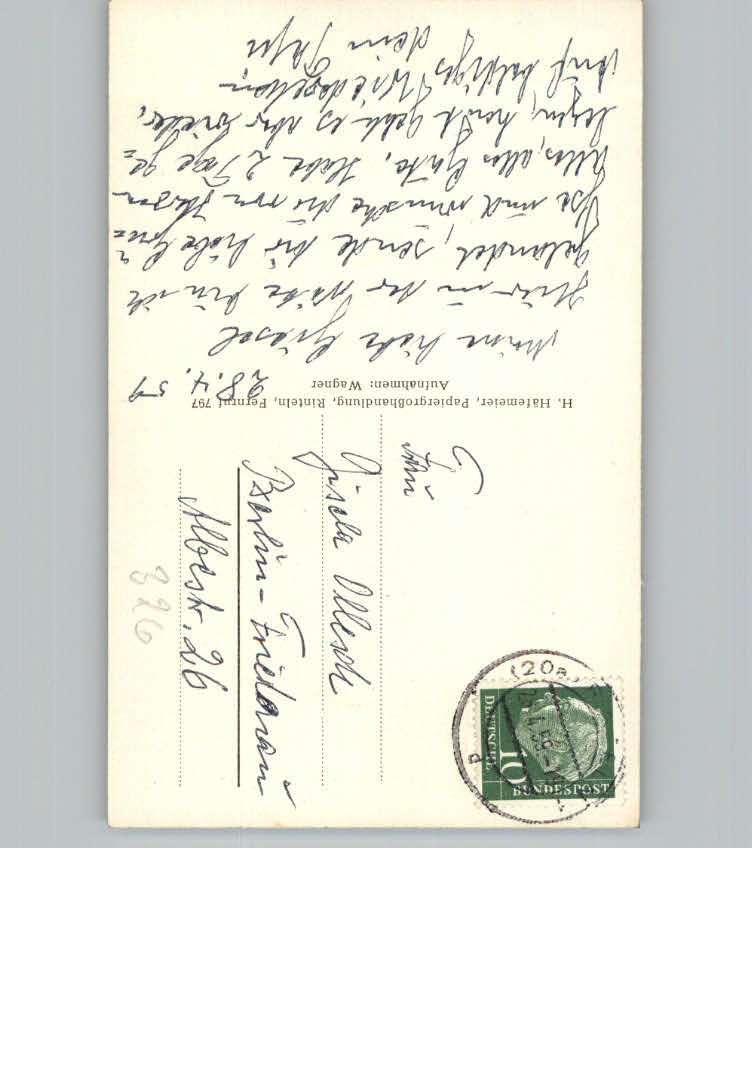 28.4.59
Meine liebe Giesel
Hier in der Nähe bin ich
gelandet, sende dir liebe Grü=
ße und wünsche dir von Herzen
alles, alles Gute. Habe 2 Tage ge=
legen, heut geht es aber wieder.
Auf baldiges Wiedersehen
dein
H. Häfemeier, Papiergroßhandlung, Rinteln, Fernruf 797
Aufnahmen: Wagner
Frau
Gisela Ollesch
Berlin-Friedenau
Albestr. 26
326
(20a)
DEUTSCHE
BUNDESPOST
10